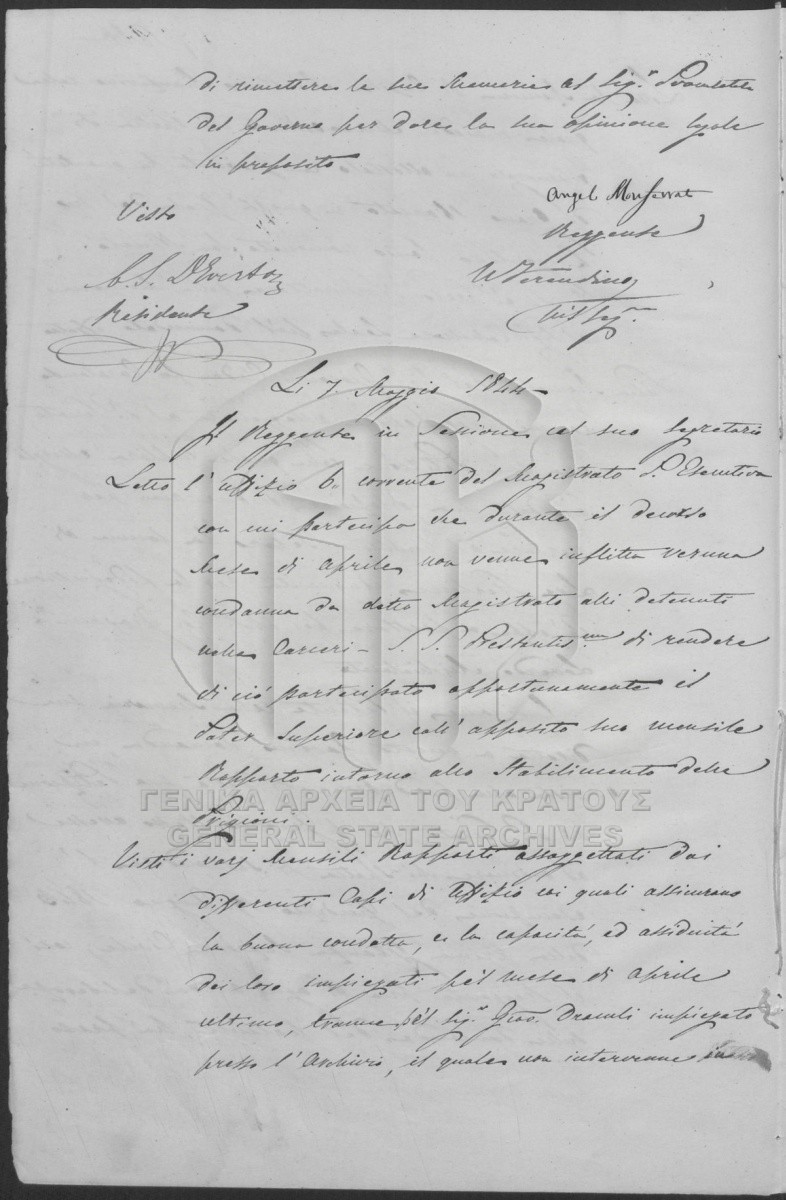 di rimettere la sua Memoria al Sig.r Avvocato
del Governo per dare la sua opinione legale
in proposito
Visto
Angel Monferrato
Reggente
C. S. D'Everton
Residente
Vis Seg.
Li 7 Maggio 1844
Il Reggente in Sessione col suo Segretario
Letto l'uffizio 6 corrente del Magistrato P. Esecutiva
con cui partecipa che durante il decorso
Mese di Aprile non venne inflitta veruna
condanna da detto Magistrato alli detenuti
nelle Carceri – S. S. Prestantis.mo di rendere
di ciò partecipato opportunamente il
Poter Superiore coll'apposito suo mensile
Rapporto intorno allo Stabilimento delle
Prigioni.
Visti i varj Mensili Rapporti assoggettati dai
differenti Capi di Uffizio coi quali assicurano
la buona condotta, e la capacità, ed assiduità
dei loro impiegati pel mese di Aprile
ultimo, tranne pel Sig.r Gio. impiegato
presso l'Archivio, il quale non intervenne in
ΓΕΝΙΚΑ ΑΡΧΕΙΑ ΤΟΥ ΚΡΑΤΟΥΣ
GENERAL STATE ARCHIVES